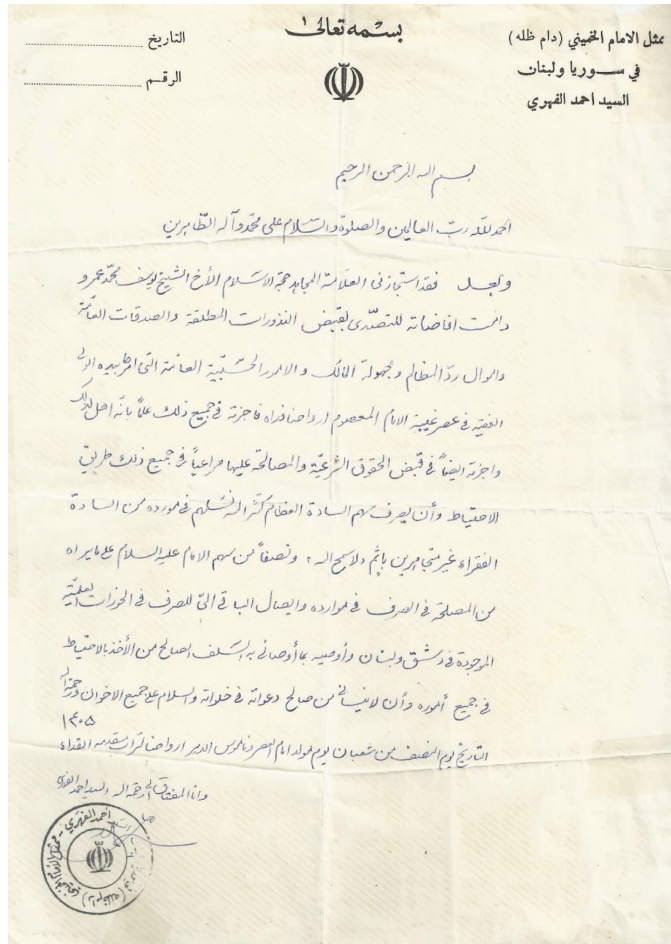 بسمه تعالى
ممثل الامام الخميني (دام ظله)
في سوريا ولبنان
السيد احمد الفهري
التاريخ
الرقم
بسم الله الرحمن الرحيم
الحمد لله رب العالمين والصلوة والسلام على محمد وآله الطاهرين
وبعد فقد استجازني العلامة المجاهد حجة الاسلام الأخ الشيخ يوسف محمد عمرو
دامت افاضاته للتصدى لقبض النذورات المطلقة والصدقات العامة
واموال رد المظالم ومجهولة المالك والامور الحسبية العامة التي امرها بيد
الفقيه في عصر غيبة الامام المعصوم ارواحنا فداه فاجزته في جميع ذلك علماً بأنه اهل لذلك
واجزته ايضاً في قبض الحقوق الشرعية والمصالحة عليها مراعياً في جميع ذلك طريق
الاحتياط وأن يصرف سهم السادة العظام كثر الله نسلهم في مورده من السادة
الفقراء غير متجاهرين بإثم لا سمح الله، ونصفاً من سهم الامام عليه السلام على ما يراه
من المصلحة في الصرف في موارده وايصال الباقي اليّ للصرف في الحوزات العلمية
الموجودة في دمشق ولبنان وأوصيه بما أوصاني به السلف الصالح من الأخذ بالاحتياط
في جميع أموره وأن لا ينساني من صالح دعواته في خلواته والسلام على جميع الاخوان ورحمة الله
١٤٠٥
التاريخ يوم النصف من شعبان يوم مولد امام العصر وناموس الدهر ارواحنا لتراب مقدمه الفداء
وانا المفتاق الى رحمة الله السيد احمد الفهري
السيد أحمد الفهري - ممثل الامام الخميني (دام ظله) في